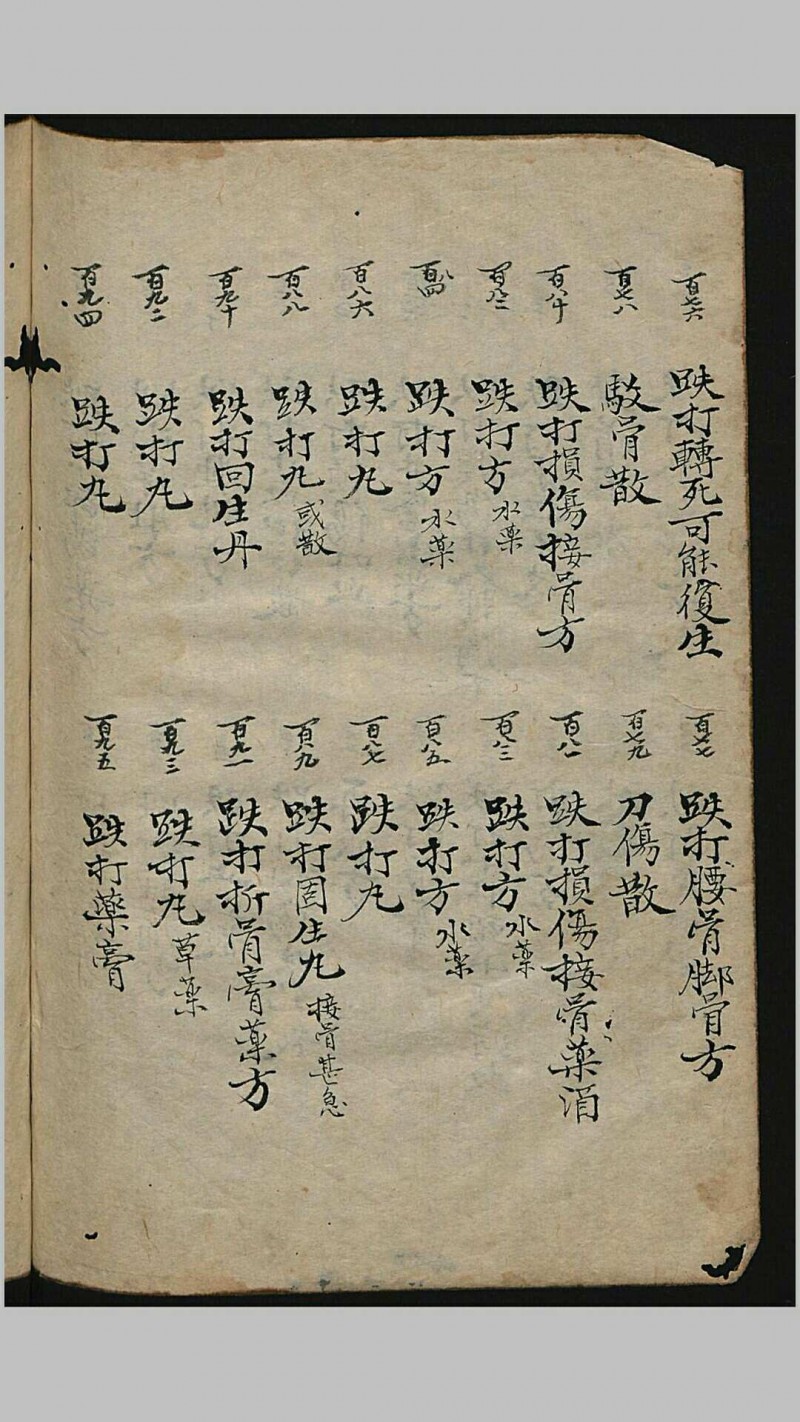 百七六 跌打轉死可能復生
百七七 跌打腰骨脚骨方
百七八 骰骨散
百七九 刀傷散
百八十 跌打損傷接骨方
百八一 跌打損傷接骨薬
百八二 跌打方 水薬
百八三 跌打方 水薬
百八四 跌打方 水薬
百八五 跌打方 水薬
百八六 跌打丸
百八七 跌打丸
百八八 跌打丸 或散
百八九 跌打回生丸 接骨甚急
百九十 跌打回生丹
百九一 跌打折骨膏薬方
百九二 跌打丸
百九三 跌打丸 草薬
百九四 跌打丸
百九五 跌打藥膏